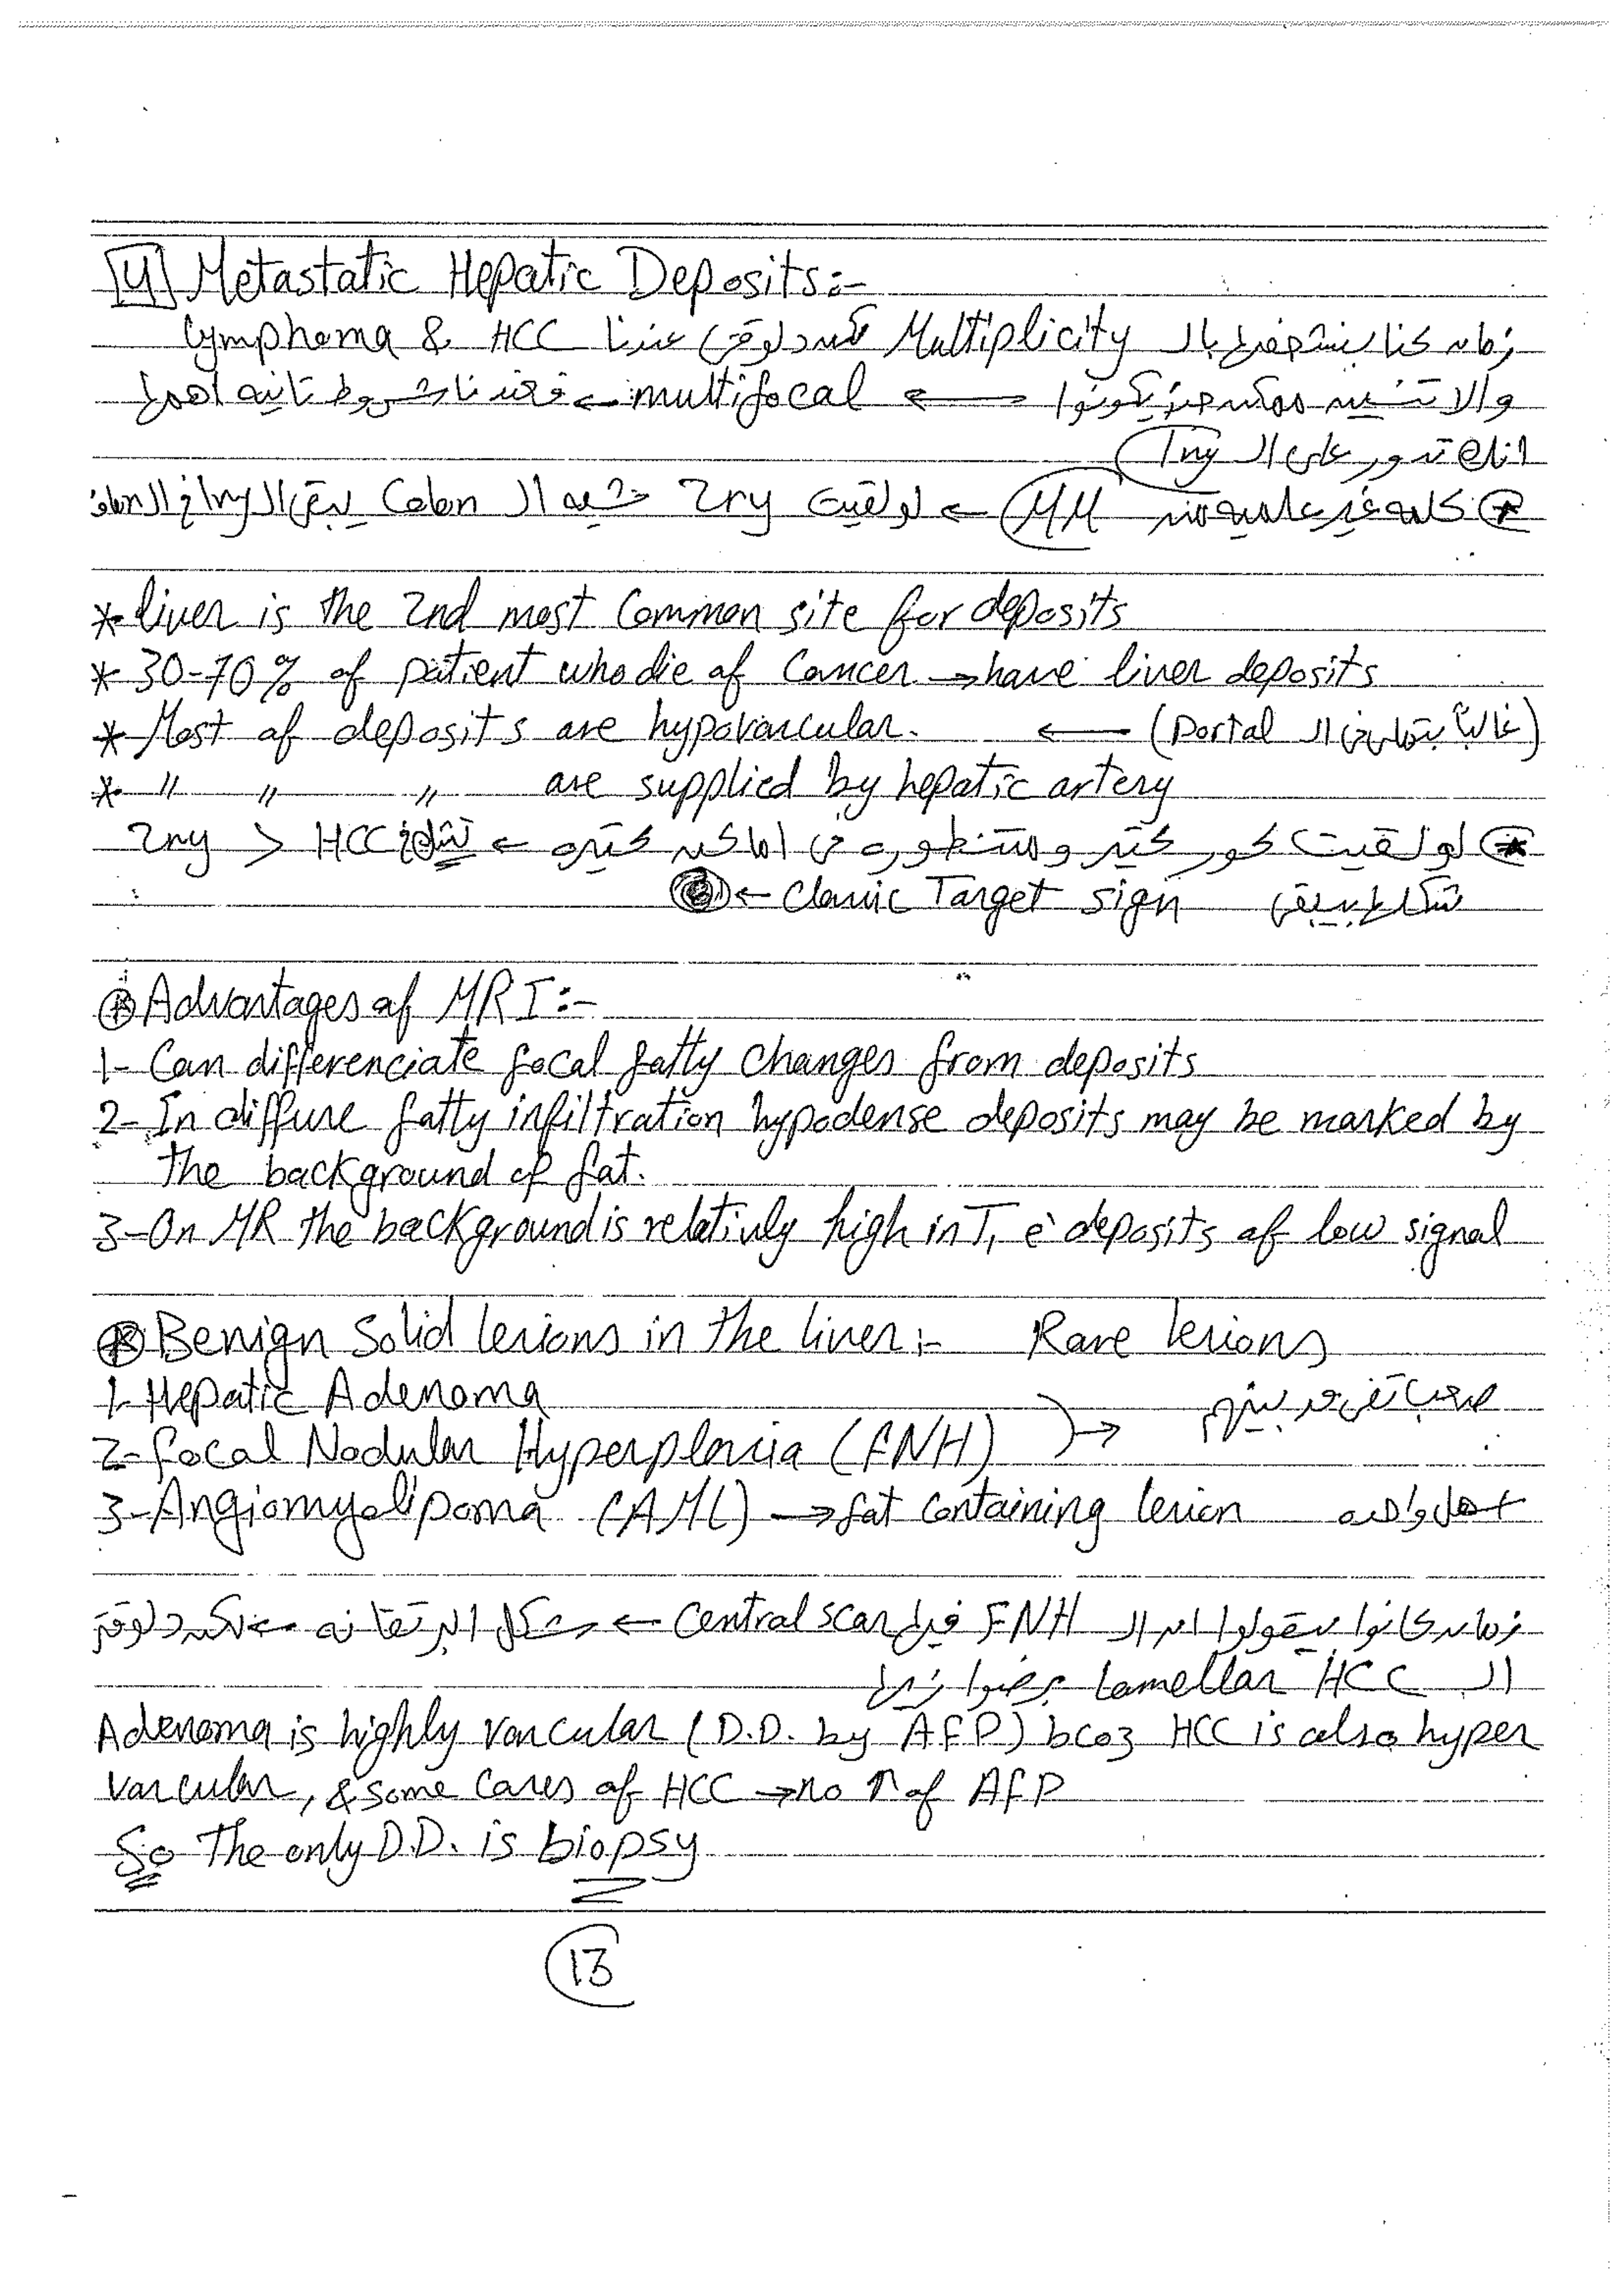 [4] Metastatic Hepatic Deposits:-
زمان كنا بنشخصها بال Multiplicity لكن دلوقتي عندنا Lymphoma & HCC
والاتنين ممكن يكونوا → multifocal ← فعندنا شروط تانيه اهمها
انك تدور على ال 1ry
* كلمه غير علميه MM ← لو لقيت 2ry شبه ال Colon يبقى ال 1ry في
* liver is the 2nd most Common site for deposits
* 30-70% of patient who die of Cancer → have liver deposits
* Most of deposits are hypovascular. ← (غالباً بتبان في ال Portal)
* " " " are supplied by hepatic artery
* لو لقيت كور كتير ومتنطوره في اماكن كتيره ← 2ry > HCC
شكلها بيبقى Classic Target sign ←
* Advantages of MRI:-
1- Can differenciate focal fatty changes from deposits
2- In diffuse fatty infiltration hypodense deposits may be marked by
the background of fat.
3- On MR the background is relativly high in T1 c̄ deposits of low signal
* Benign Solid lesions in the liver:- Rare lesions
1- Hepatic Adenoma
2- Focal Nodular Hyperplasia (FNH) ) → صعب تفرق بينهم
3- Angiomyolipoma (AML) → fat containing lesion
زمان كانوا بيقولوا ان ال FNH فيها Central scar ← شكل البرتقانه ← لكن دلوقتي
ال Lamellar HCC برضوا زيها
Adenoma is highly vascular (D.D. by AFP) bcoz HCC is also hyper
vascular, & some cases of HCC → no ↑ of AFP
So The only D.D. is biopsy
13